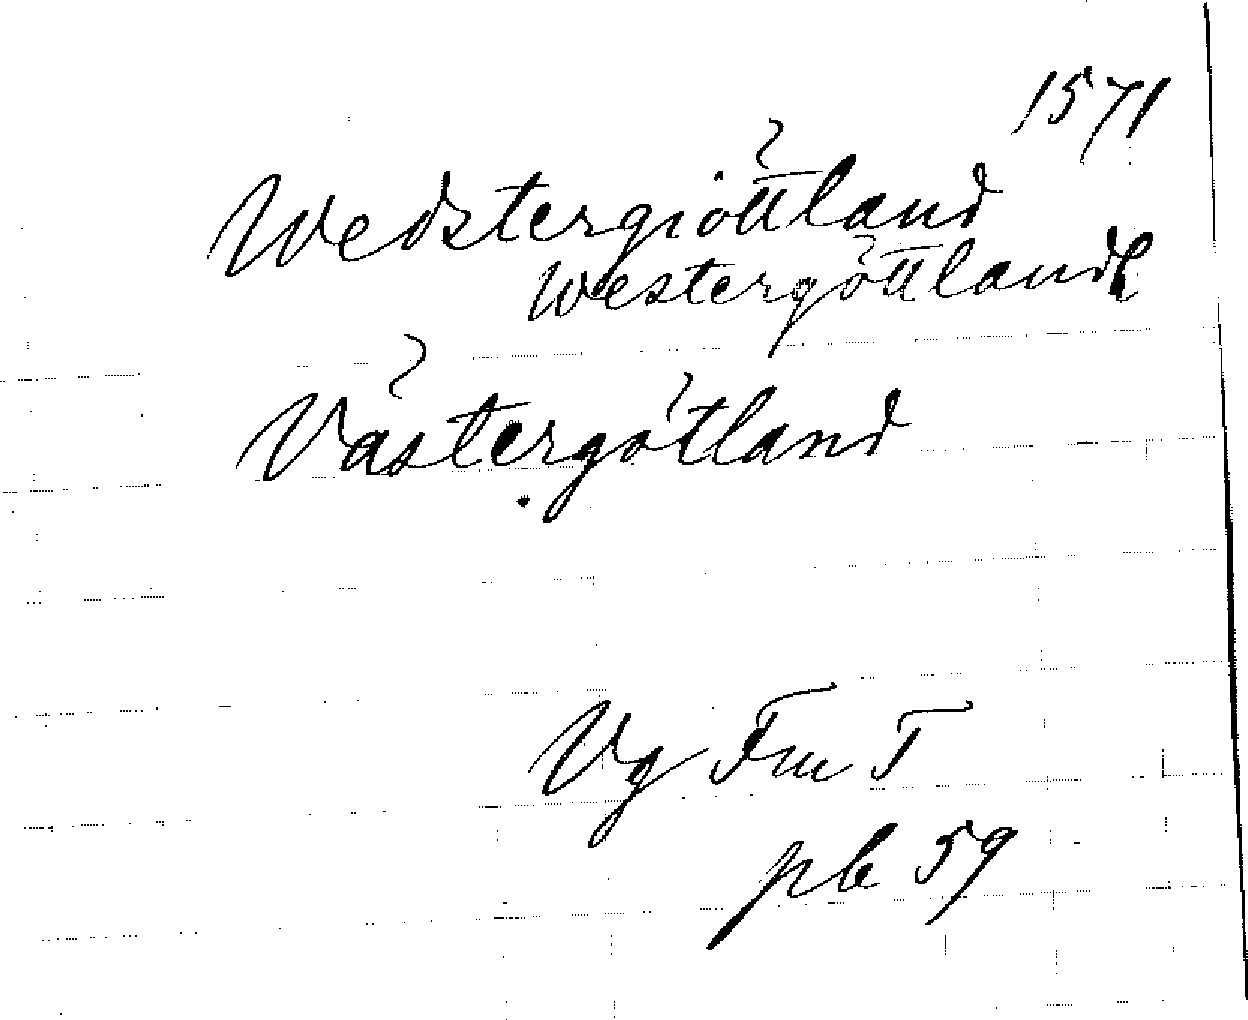 1571
Wedstergiöttland
Westergöttlandh
Västergötland
Vg Fm T
pb 59